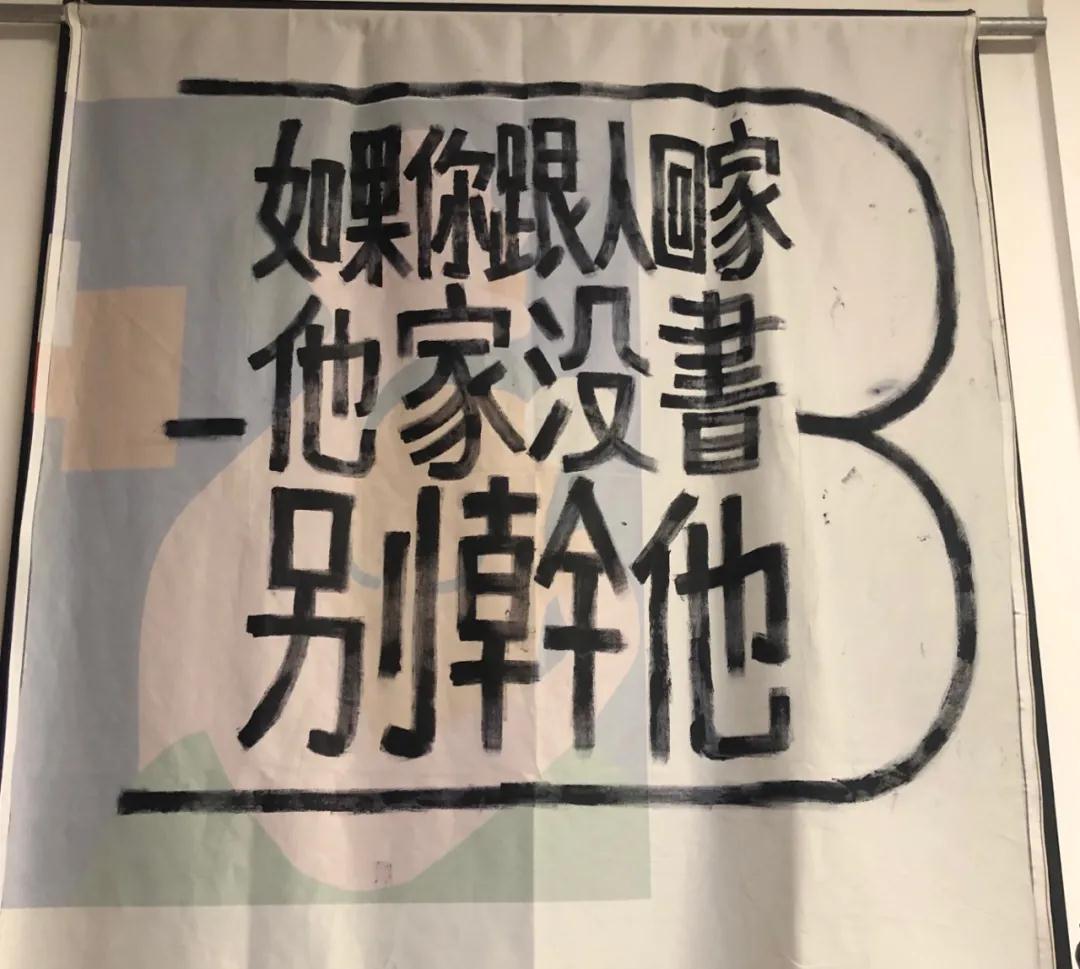 如果你跟人回家
他家没書
别幹他